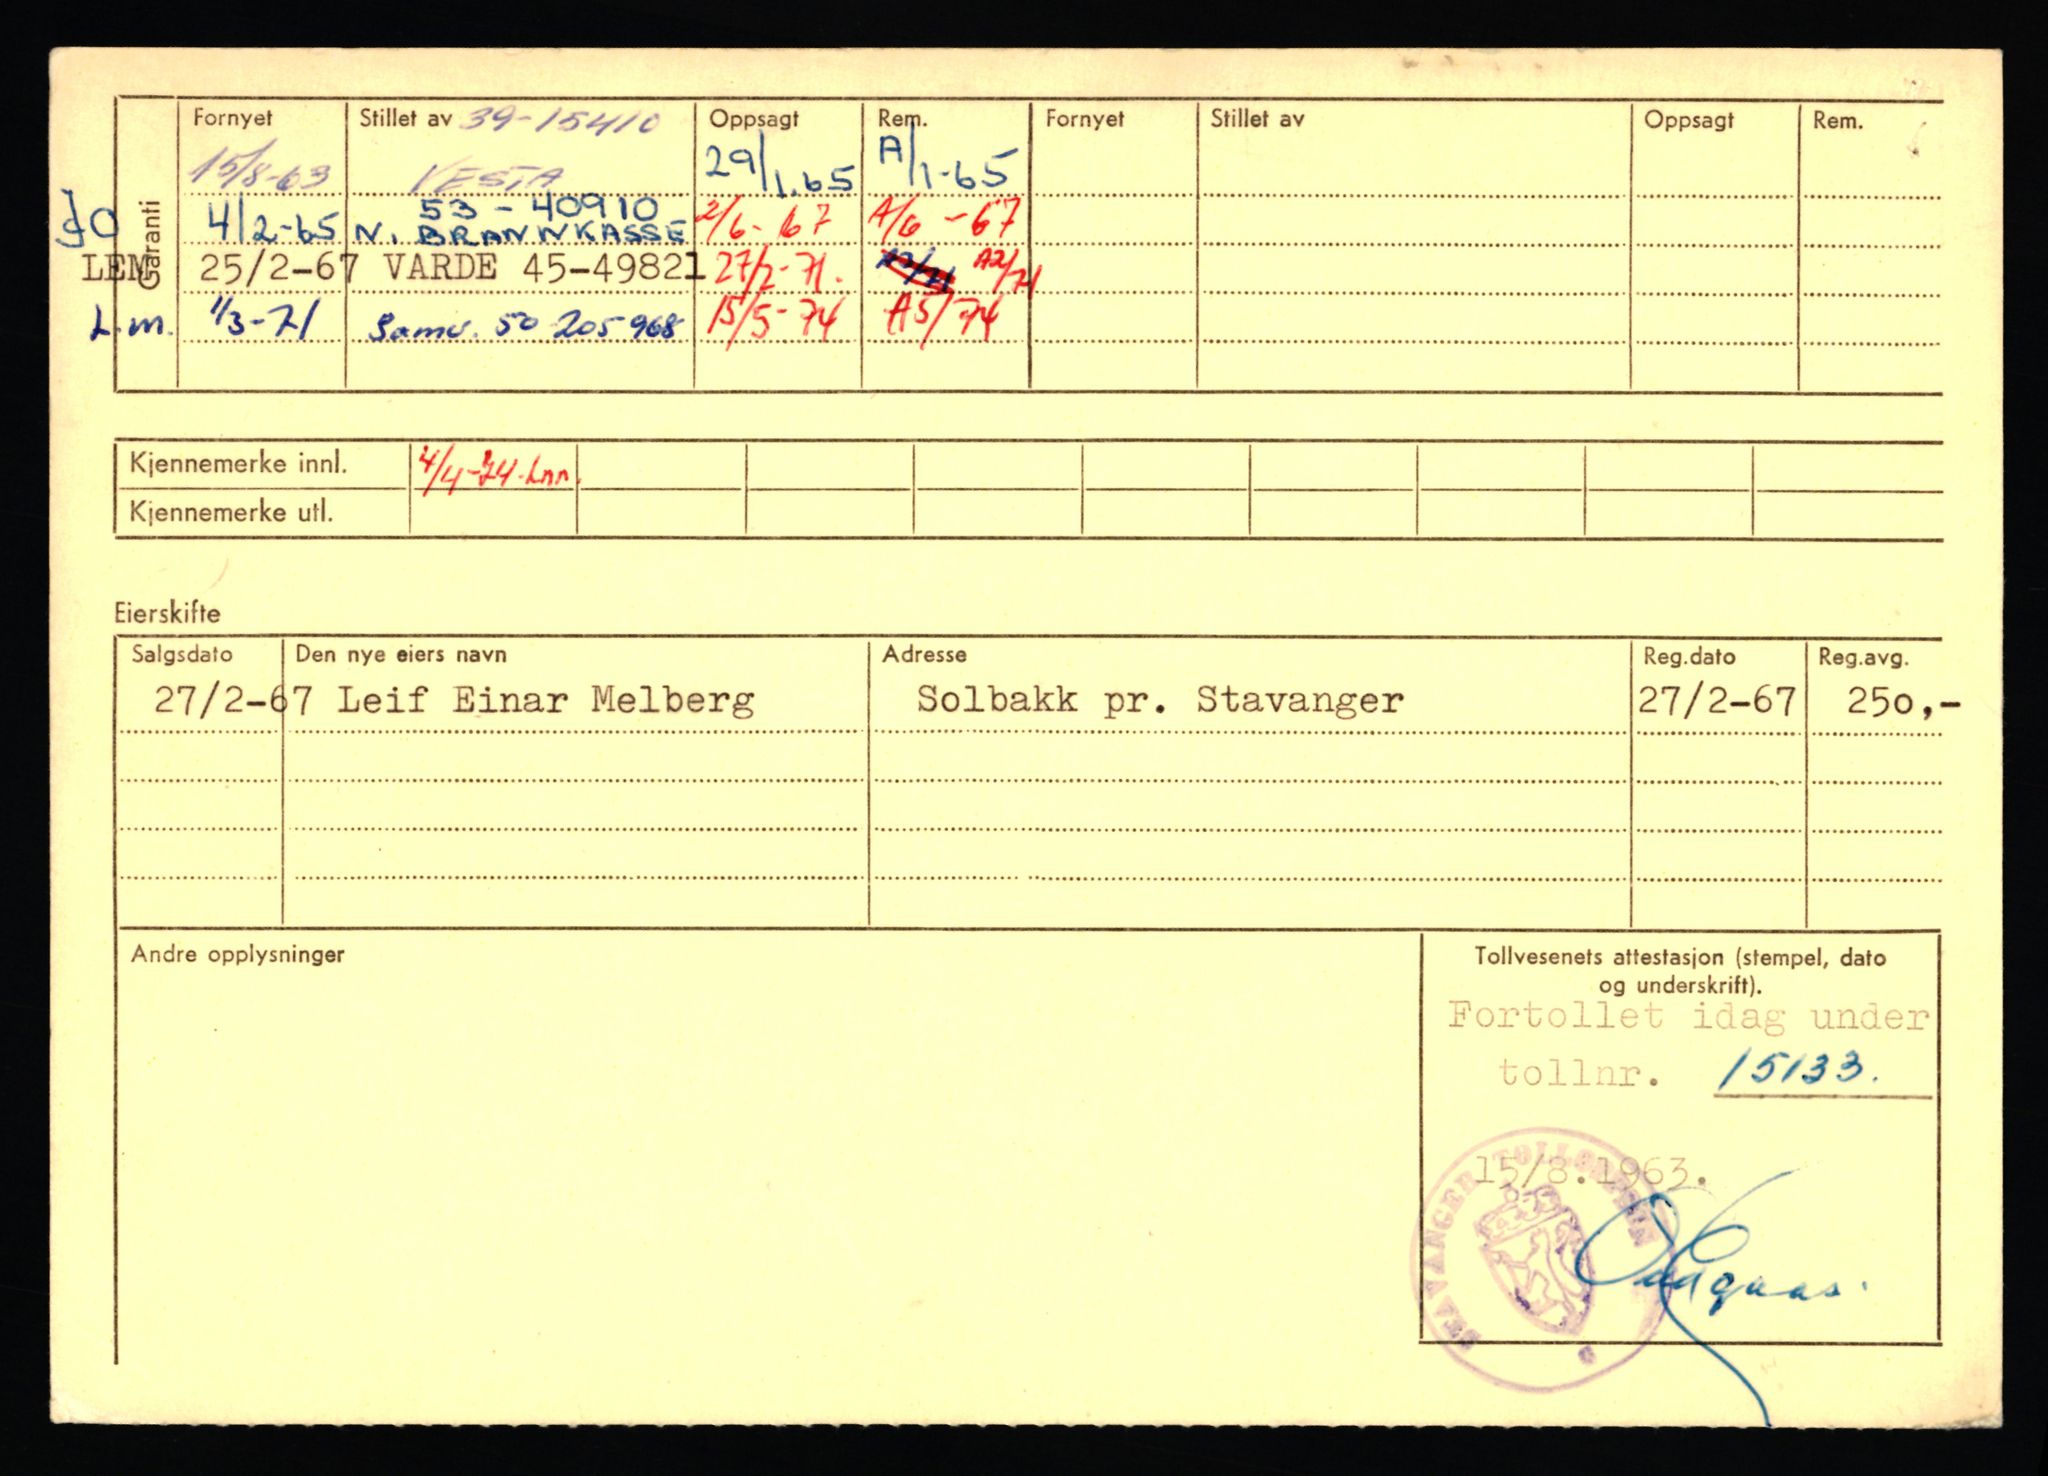 Garanti
Fornyet Stillet av 39-15410 Oppsagt Rem. Fornyet Stillet av Oppsagt Rem.
15/8-63 VESTA 29/1.65 A/1-65
53-40910
JO 4/2-65 N. BRANNKASSE 2/6-67 A/6-67
LEM 25/2-67 VARDE 45-49821 27/2-71. A2/71 A2/71
L.m. 1/3-71 Samv. 50 205968 15/5-74 A5/74
Kjennemerke innl. 4/4-74
Kjennemerke utl.
Eierskifte
Salgsdato Den nye eiers navn Adresse Reg.dato Reg.avg.
27/2-67 Leif Einar Melberg Solbakk pr. Stavanger 27/2-67 250,-
Andre opplysninger
Tollvesenets attestasjon (stempel, dato
og underskrift).
Fortollet idag under
tollnr. 15133.
15/8.1963.
STAVANGER